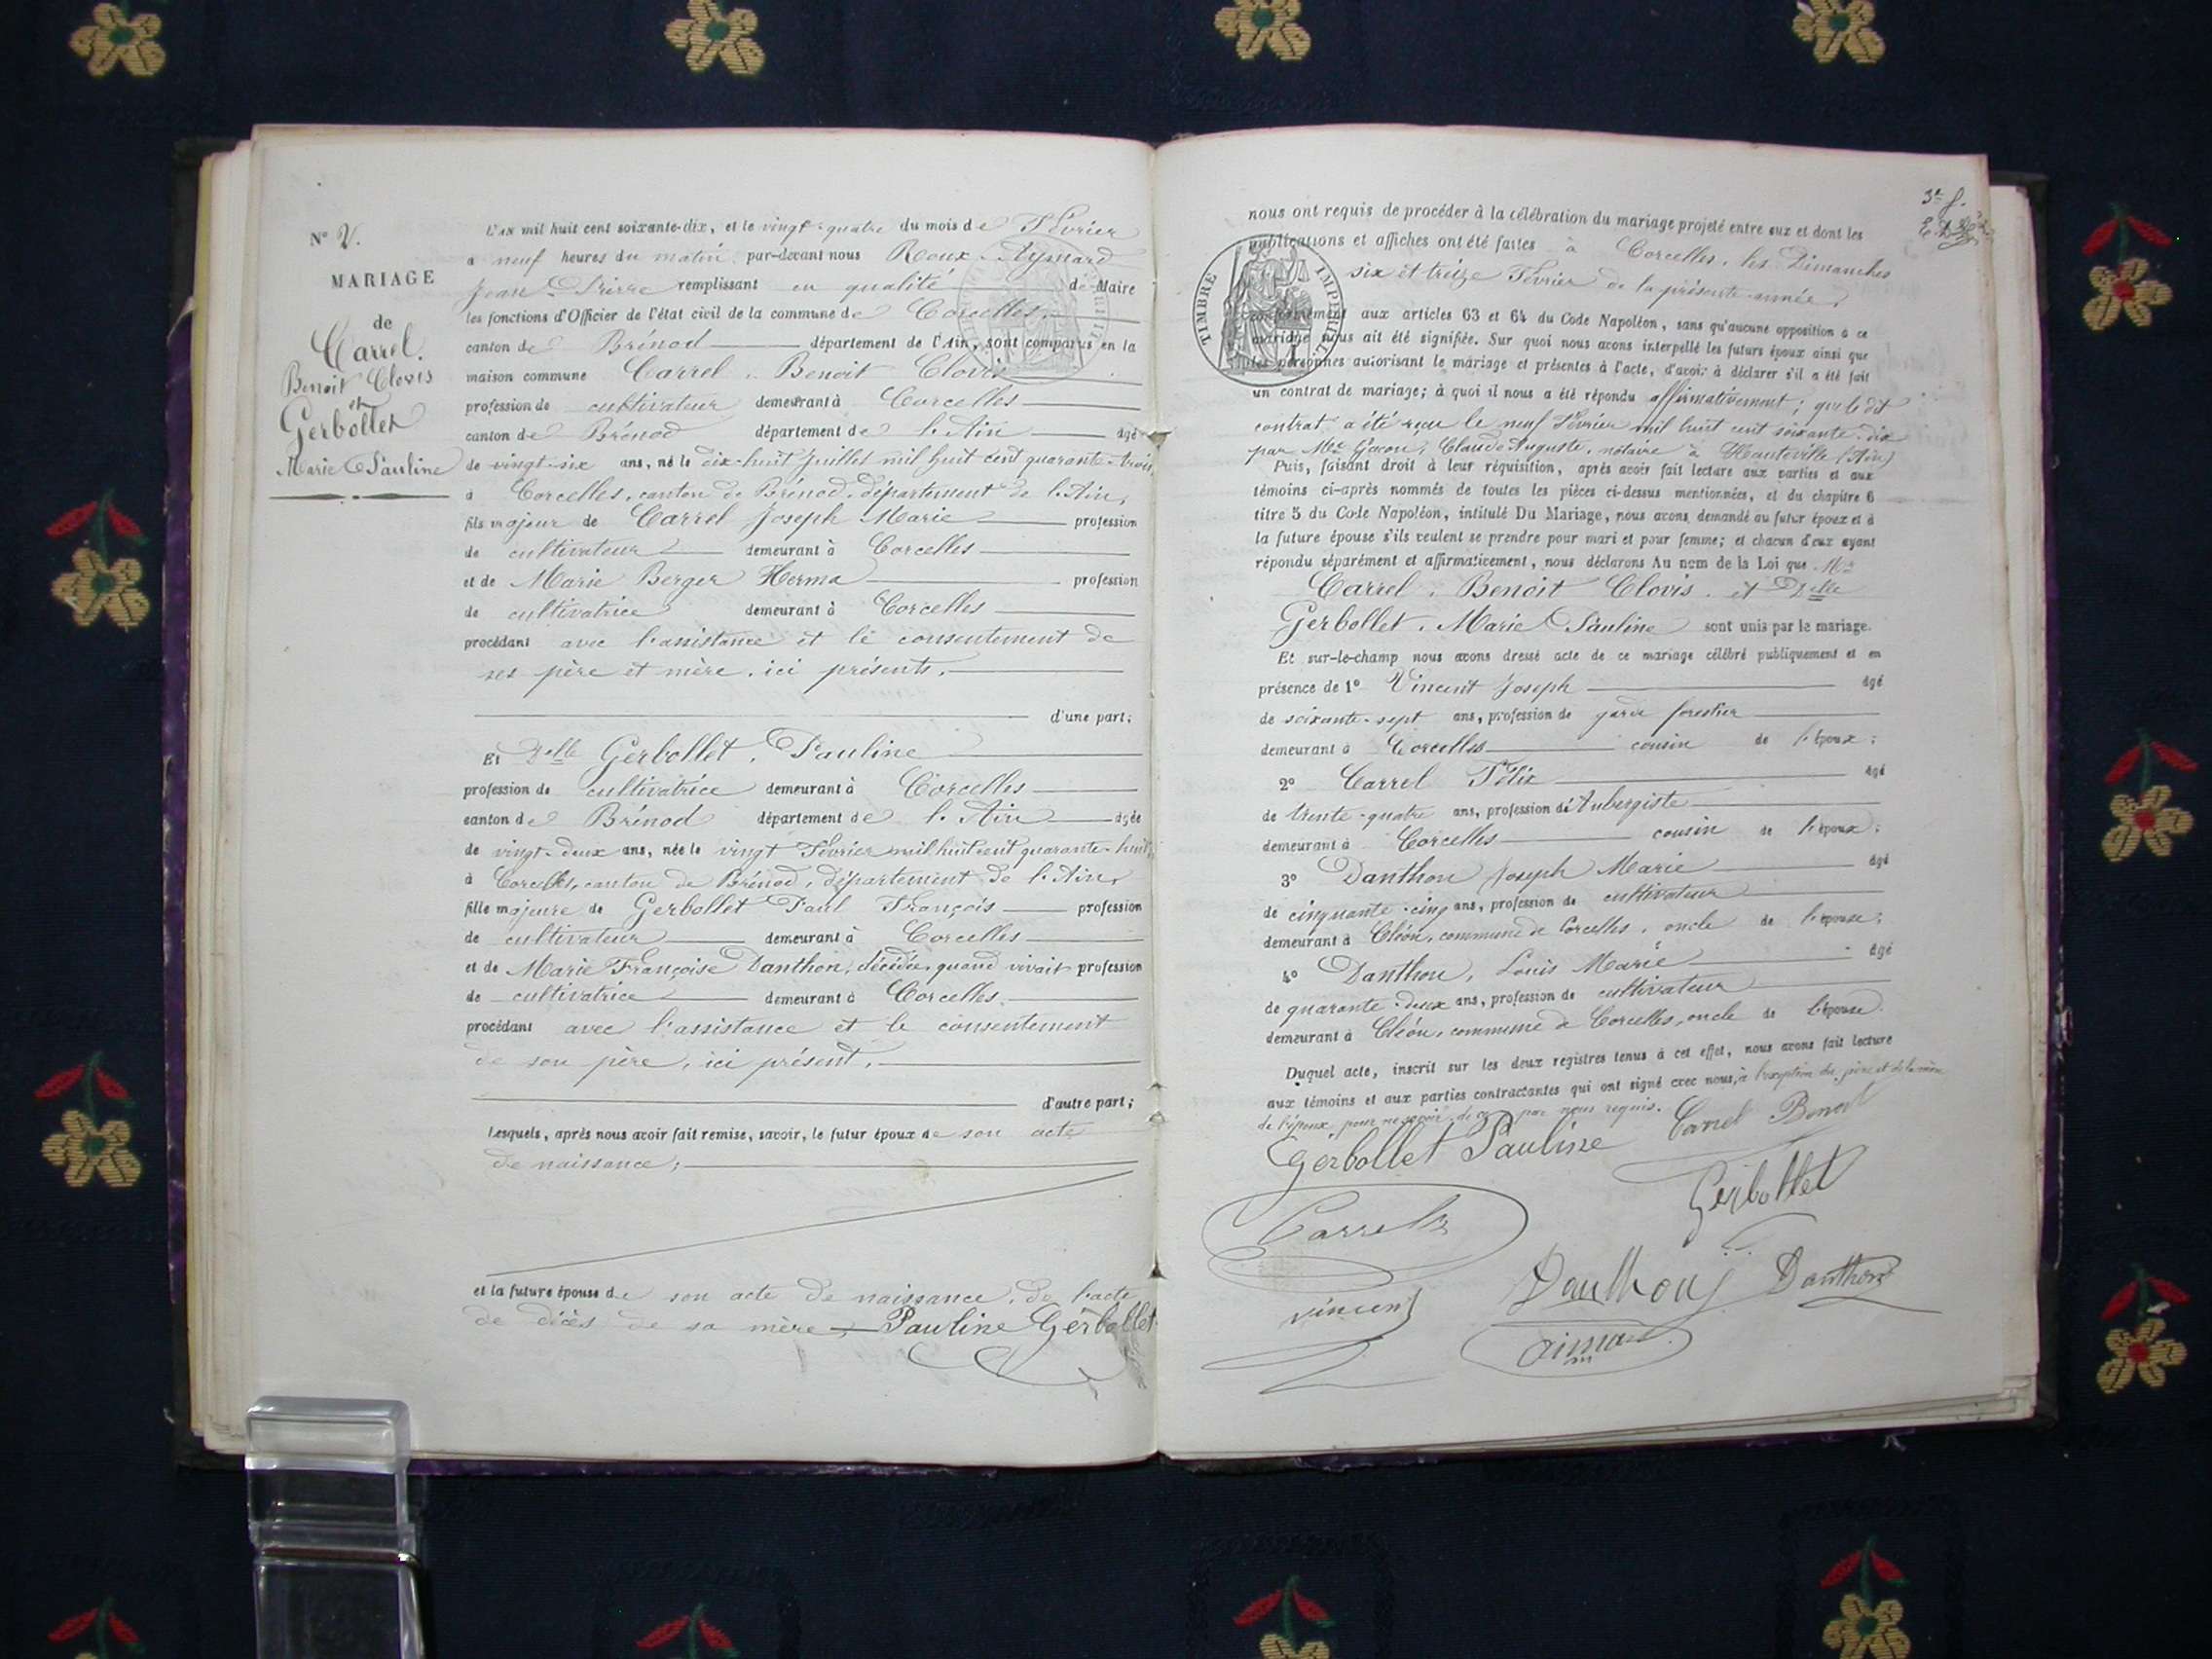 N° 2.
MARIAGE
de
Carrel.
Benoit Clovis
et
Gerbollet
Marie Pauline
L'an mil huit cent soixante-dix, et le vingt-quatre du mois de Février
a neuf heures du matin par-devant nous Roux-Aymard
Jean-Pierre remplissant en qualité de Maire
les fonctions d'Officier de l'état civil de la commune de Corcelles,
canton de Brénod département de l'Ain, sont comparus en la
maison commune Carrel, Benoit Clovis
profession de cultivateur demeurant à Corcelles
canton de Brénod département de l'Ain âgé
de vingt-six ans, né le dix-huit juillet mil huit cent quarante-trois
à Corcelles, canton de Brénod, département de l'Ain,
fils majeur de Carrel Joseph Marie profession
de cultivateur demeurant à Corcelles
et de Marie Berger Herma profession
de cultivatrice demeurant à Corcelles
procédant avec l'assistance et le consentement de
ses père et mère, ici présents.
d'une part;
Et Delle Gerbollet, Pauline
profession de cultivatrice demeurant à Corcelles
canton de Brénod département de l'Ain âgée
de vingt-deux ans, née le vingt Février mil huit cent quarante-huit,
à Corcelles, canton de Brénod, département de l'Ain,
fille majeure de Gerbollet Paul François profession
de cultivateur demeurant à Corcelles
et de Marie Françoise Danthon, décédée, quand vivait profession
de cultivatrice demeurant à Corcelles.
procédant avec l'assistance et le consentement
de son père, ici présent,
d'autre part;
Lesquels, après nous avoir fait remise, savoir, le futur époux de son acte
de naissance;
et la future épouse de son acte de naissance, de l'acte
de décès de sa mère, Pauline Gerbollet
3e f.
nous ont requis de procéder à la célébration du mariage projeté entre eux et dont les
publications et affiches ont été faites à Corcelles, les Dimanches
six et treize Février de la présente année,
TIMBRE IMPÉRIAL
conformément aux articles 63 et 64 du Code Napoléon, sans qu'aucune opposition a ce
mariage nous ait été signifiée. Sur quoi nous avons interpellé les futurs époux ainsi que
les personnes autorisant le mariage et présentes à l'acte, d'avoir à déclarer s'il a été fait
un contrat de mariage; à quoi il nous a été répondu affirmativement; que le dit
contrat a été reçu le neuf Février mil huit cent soixante-dix
par Me Claude Auguste, notaire à Hauteville (Ain)
Puis, faisant droit à leur réquisition, après avoir fait lecture aux parties et aux
témoins ci-après nommés de toutes les pièces ci-dessus mentionnées, et du chapitre 6
titre 5 du Code Napoléon, intitulé Du Mariage, nous avons demandé au futur époux et à
la future épouse s'ils veulent se prendre pour mari et pour femme; et chacun d'eux ayant
répondu séparément et affirmativement, nous déclarons Au nom de la Loi que Mr
Carrel, Benoit Clovis. et Delle
Gerbollet, Marie Pauline sont unis par le mariage.
Et sur-le-champ nous avons dressé acte de ce mariage célébré publiquement et en
présence de 1° Vincent Joseph âgé
de soixante-sept ans, profession de garde forestier
demeurant à Corcelles cousin de l'époux;
2° Carrel Félix âgé
de trente-quatre ans, profession d'Aubergiste
demeurant à Corcelles cousin de l'époux;
3° Danthon Joseph Marie âgé
de cinquante-cinq ans, profession de cultivateur
demeurant à Cléon, commune de Corcelles, oncle de l'épouse;
4° Danthon, Louis Marie âgé
de quarante-deux ans, profession de cultivateur
demeurant à Cléon, commune de Corcelles, oncle de l'épouse.
Duquel acte, inscrit sur les deux registres tenus à cet effet, nous avons fait lecture
aux témoins et aux parties contractantes qui ont signé avec nous, à l'exception du père et de la mère
de l'époux pour ne savoir, de ce par nous requis.
Gerbollet Pauline Carrel Benoit
Carrel Gerbollet
Vincent Danthon J Danthon